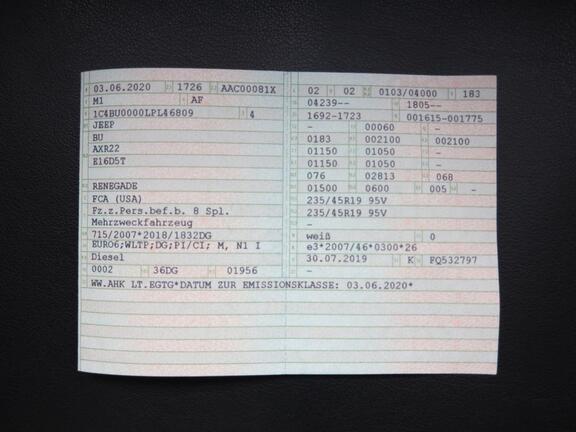 03.06.2020 1726 AAC00081X
M1 AF
1C4BU0000LPL46809 4
JEEP
BU
AXR22
E16D5T
RENEGADE
FCA (USA)
Fz.z.Pers.bef.b. 8 Spl.
Mehrzweckfahrzeug
715/2007*2018/1832DG
EURO6;WLTP;DG;PI/CI; M, N1 I
Diesel
0002 36DG 01956
02 02 0103/04000 183
04239-- 1805--
1692-1723 001615-001775
- 00060 -
0183 002100 002100
01150 01050 -
01150 01050 -
076 02813 068
01500 0600 005 -
235/45R19 95V
235/45R19 95V
weiß 0
e3*2007/46*0300*26
30.07.2019 K FQ532797
-
WW.AHK LT.EGTG*DATUM ZUR EMISSIONSKLASSE: 03.06.2020*